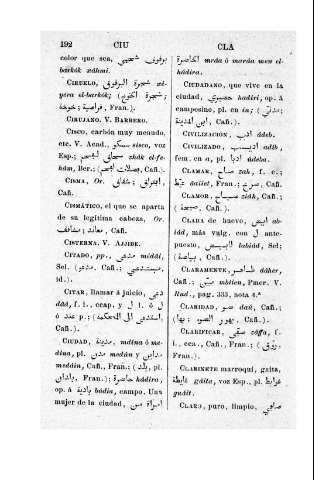 192 CIU
CLA
color que sea, شحمي برقوق
barkók xáhmi.
CIRUELO, شجرة البرقوق
xéyera el-barkók; (شجرة
Fran.).
CIRUJANO. V. BARBERO.
CISCO, carbón muy menudo,
etc. V. Acad., voz
Esp.; el-fe-
hám, Ber.; Cañ.).
CISMA, Or. شقاق
Cañ.
CISMÁTICO, el que se aparta
de su legítima cabeza, Or.
Cañ.
CISTERNA. V. ALJIBE.
CITADO, pp., مدعي middi,
Sel. (مدعي, Cañ.;
id.).
CITAR, llamar á juicio, دعي
dââ, f. i. ecap, y
ó عند p.; (استدعى الى المحكمة,
Cañ.).
CIUDAD, مدينة mdina ó me-
dina, pl. مدن medún y مداين
meddin, Cañ., Fran.; (بلد, pl.
بلدان, Fran.); حاضرة hádira,
op. á بادية bádia, campo. Una
mujer de la ciudad, امراة من
الحاضرة mráa ó maráa men el-
hádira.
CIUDADANO, que vive en la
ciudad, حضيري hadiri, op. á
campesino, pl. en in; (مدني;
ابن المدينة, Cañ.).
CIVILIZACION, ادب ádeb.
CIVILIZADO, اديب addib,
fem. en a, pl. ادبا ádeba.
CLAMAR, صاح zah, f. e.;
عيط âaiiet, Fran.; صرح, Cañ.
CLAMOR, صياح ziâh, Cañ.;
(صيحة, Cañ.).
CLARA de huevo, ابيض ab-
idd, más vulg. con ل ante-
puesto, لبيض labidd, Sel;
(بياضة, Cañ.).
CLARAMENTE, ظاهر dáher,
Cañ.; مبين mbtien, Pmer. V.
Rud., pag. 333, nota 4.ª
CLARIDAD, ضو daú, Cañ.;
(بها; بهو الضو, Cañ.).
CLARIFICAR, صفى záffa, f.
i., eca., Cañ., Fran.; (روق,
Fran.).
CLARINETE marroquí, gaita,
غايطة gáita, voz Esp., pl. غوايط
guáit.
CLARO, puro, limpio, صافي